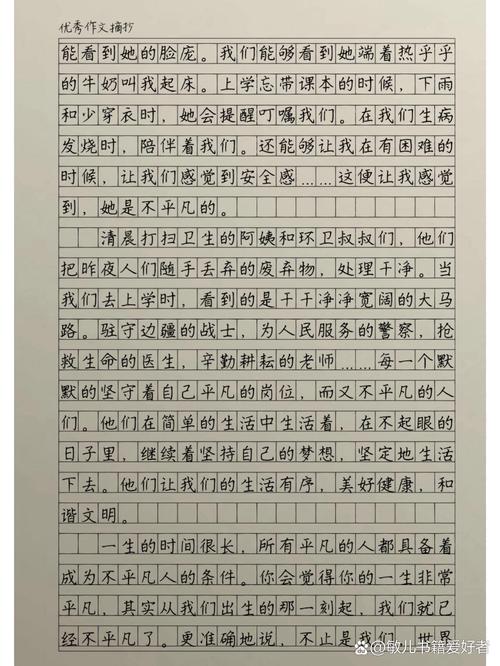 优秀作文摘抄
能看到她的脸庞。我们能够看到她端着热乎乎
的牛奶叫我起床。上学忘带课本的时候，下雨
和少穿衣时，她会提醒叮嘱我们。在我们生病
发烧时，陪伴着我们。还能够让我在有困难的
时候，让我们感觉到安全感……这便让我感觉
到，她是不平凡的。
清晨打扫卫生的阿姨和环卫叔叔们，他们
把昨夜人们随手丢弃的废弃物，处理干净。当
我们去上学时，看到的是干干净净宽阔的大马
路。驻守边疆的战士，为人民服务的警察，抢
救生命的医生，辛勤耕耘的老师……每一个默
默的坚守着自己平凡的岗位，而又不平凡的人
们。他们在简单的生活中生活着，在不起眼的
日子里，继续着坚持自己的梦想，坚定地生活
下去。他们让我们的生活有序，美好健康，和
谐文明。
一生的时间很长，所有平凡的人都具备着
成为不平凡人的条件。你会觉得你的一生非常
平凡，其实从我们出生的那一刻起，我们就已
经不平凡了。更准确地说，不止是我们，世界
@敏儿书籍爱好者